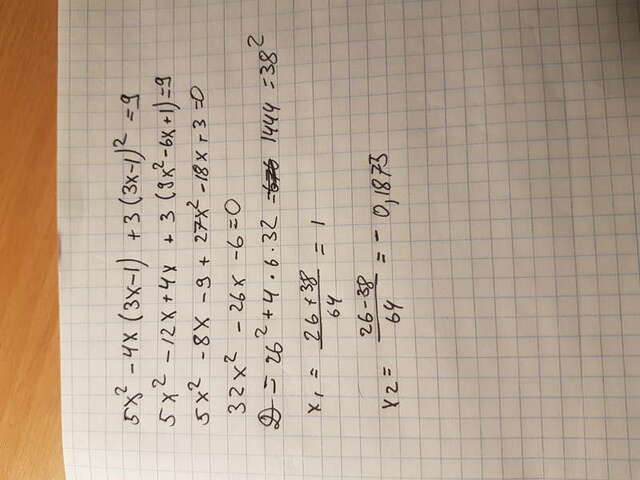 5x² - 4x(3x-1) + 3(3x-1)² = 9
5x² - 12x + 4x + 3(9x² - 6x + 1) = 9
5x² - 8x - 9 + 27x² - 18x + 3 = 0
32x² - 26x - 6 = 0
D = 26² + 4 · 6 · 32 = 1444 = 38²
x₁ = (26 + 38)/64 = 1
x₂ = (26 - 38)/64 = -0,1875